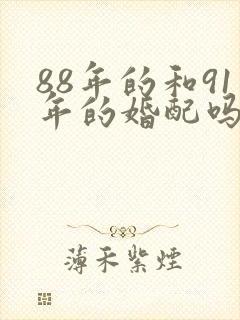 88年的和91
年的婚配吗
薄禾紫煙